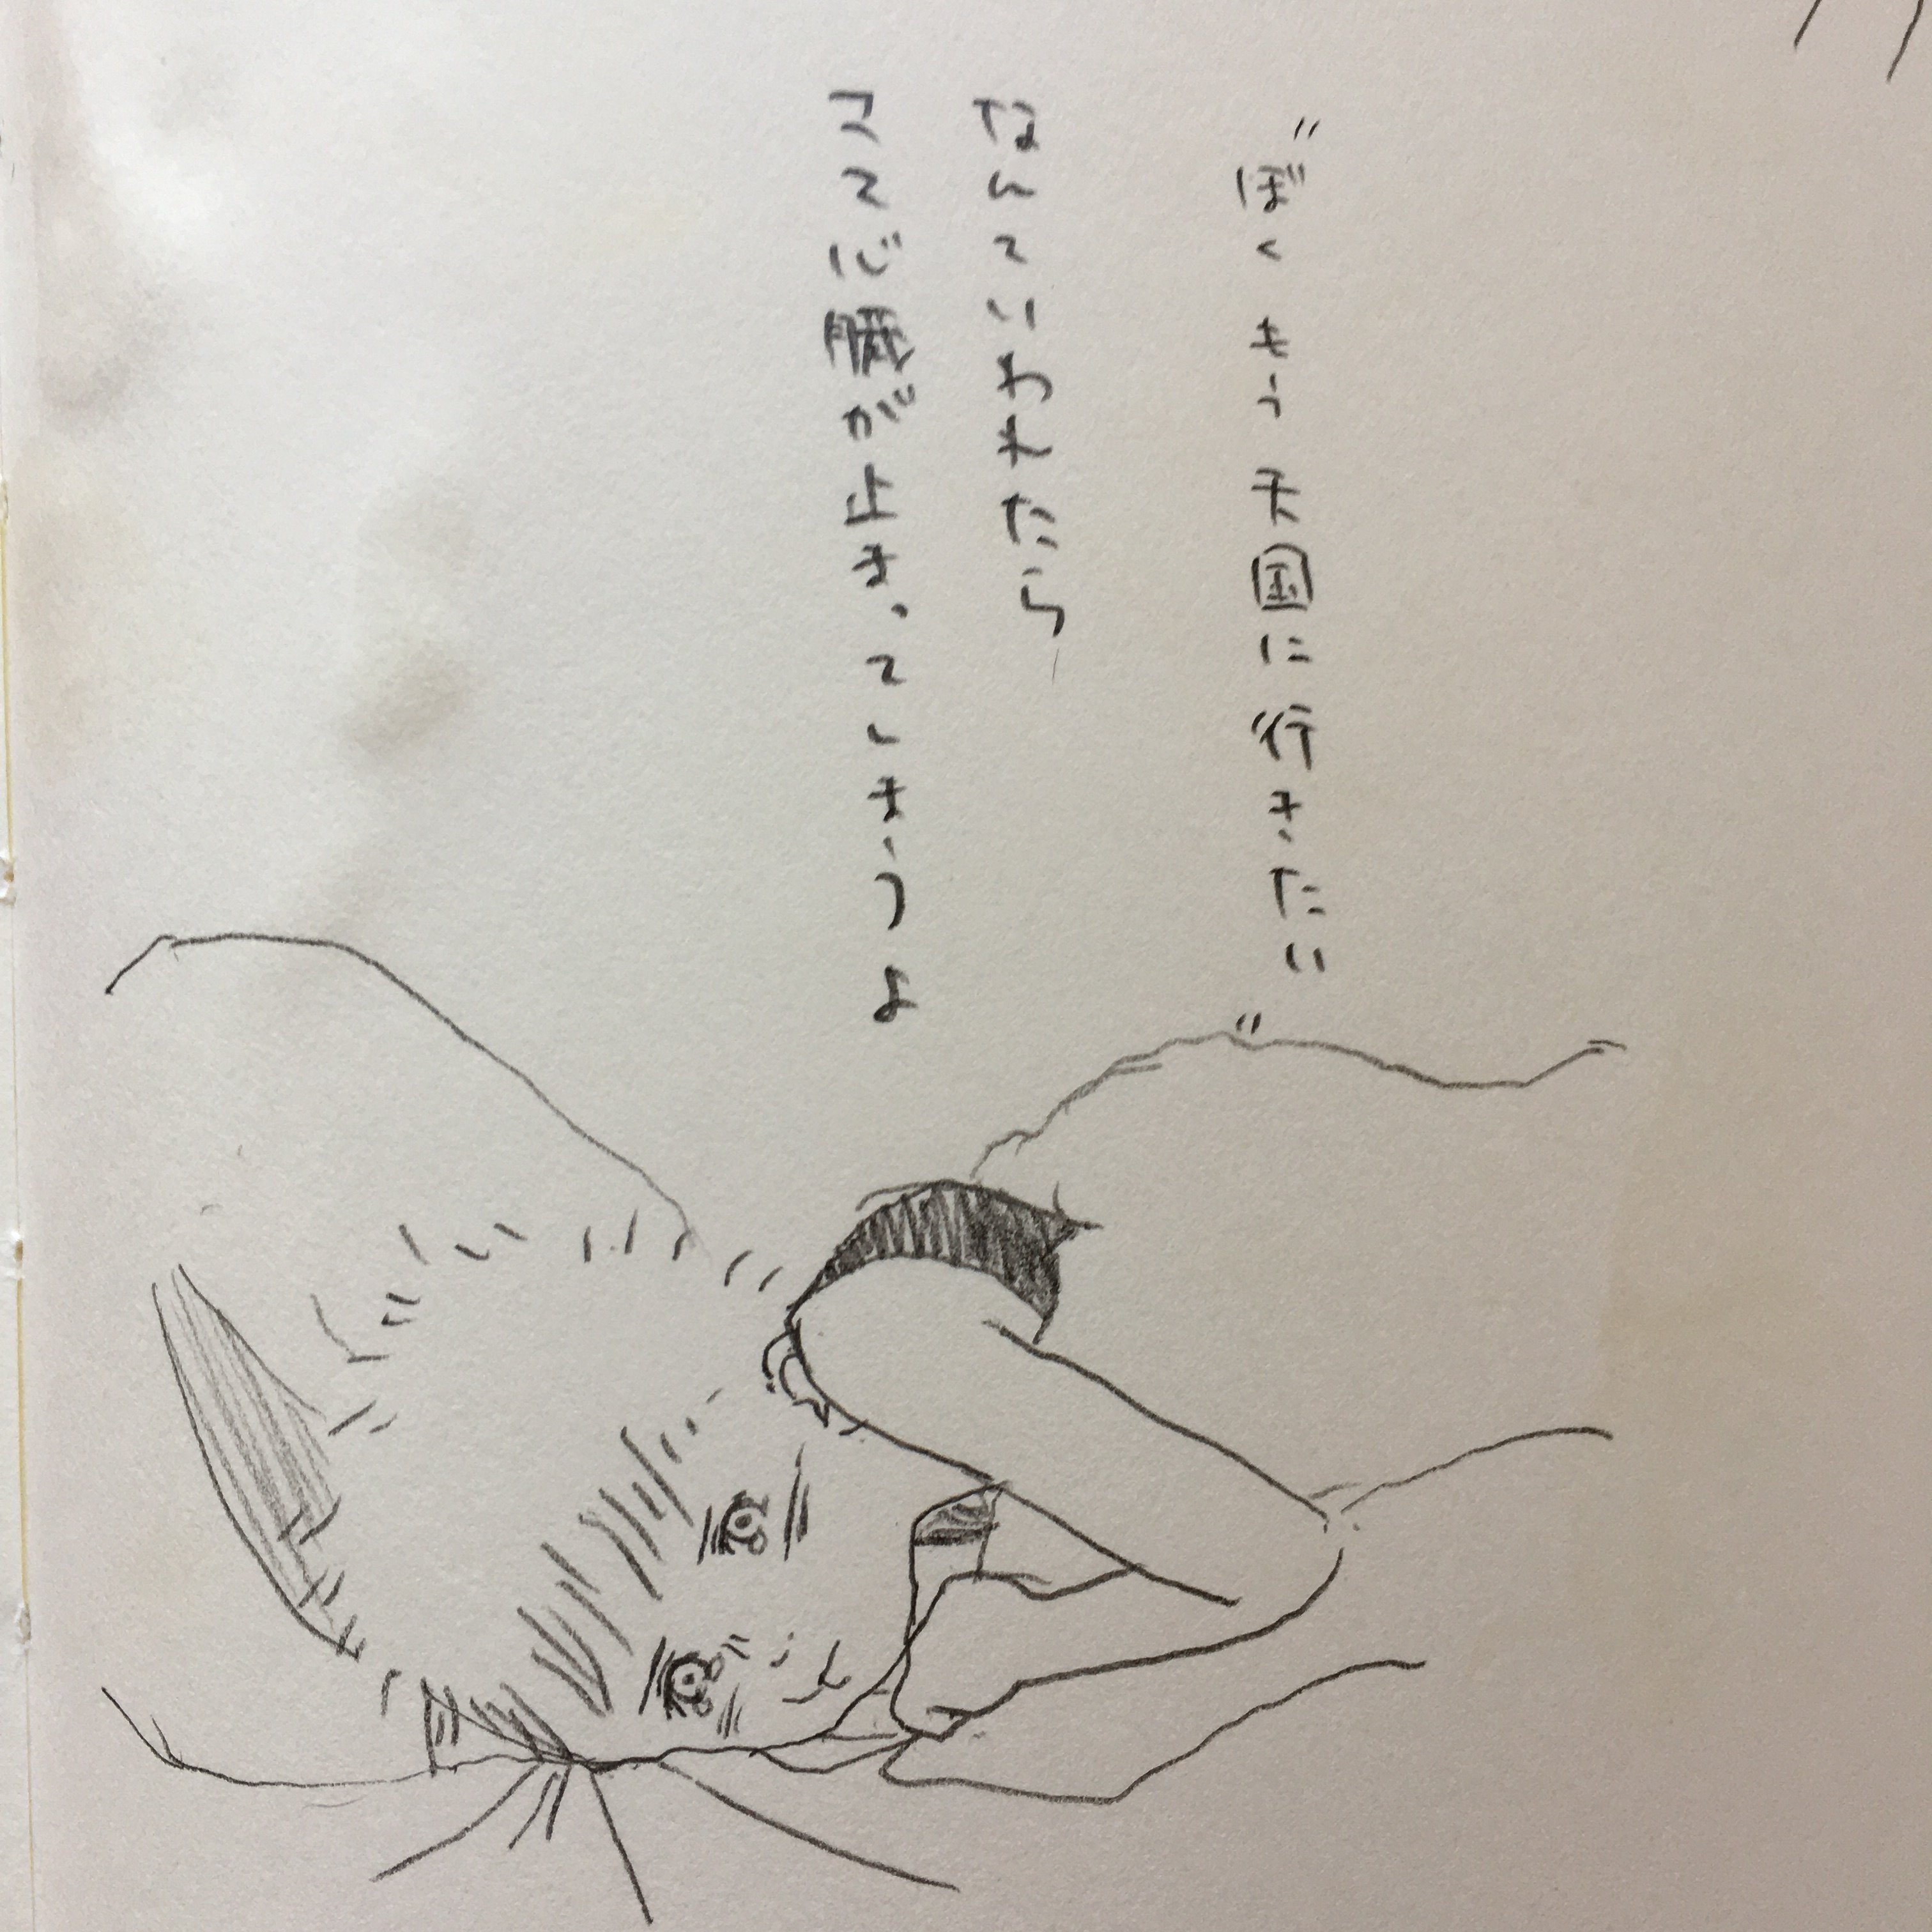 "ぼくもう天国に行きたい"
なんていわれたら
ママは腰が止まってしまうよ